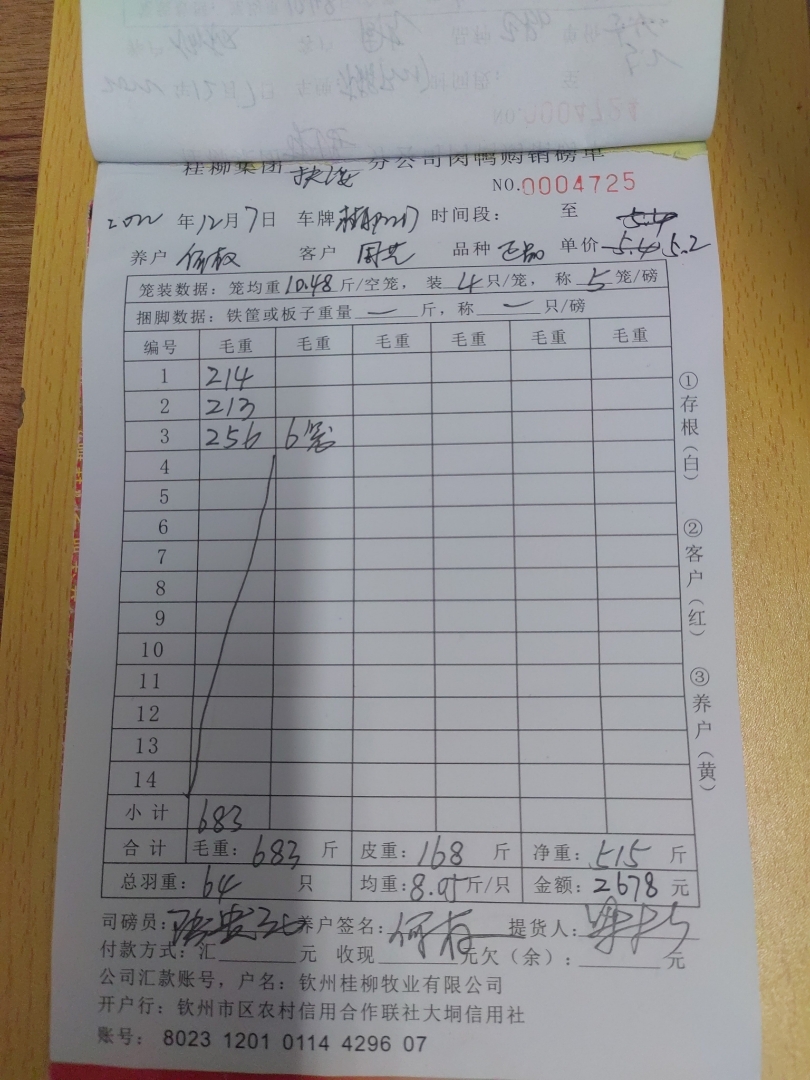 桂柳集团 扶海 分公司肉鸭购销磅单
NO.0004725
2022 年12月7日 车牌 时间段： 至 5.4
养户 何权 客户 周艺 品种 正品 单价 5.4 5.2
笼装数据：笼均重10.48斤/空笼， 装 4 只/笼， 称 5 笼/磅
捆脚数据：铁筐或板子重量 一 斤，称 一 只/磅
编号 毛重 毛重 毛重 毛重 毛重 毛重
1 214
2 213
3 256 6笼
4
5
6
7
8
9
10
11
12
13
14
小计 683
合计 毛重：683 斤 皮重：168 斤 净重：515 斤
总羽重：64 只 均重：8.05斤/只 金额：2678 元
司磅员： 养户签名：何存 提货人：
付款方式：汇 元 收现 元欠（余）： 元
公司汇款账号，户名：钦州桂柳牧业有限公司
开户行：钦州市区农村信用合作联社大垌信用社
账号： 8023 1201 0114 4296 07
①存根（白）
②客户（红）
③养户（黄）